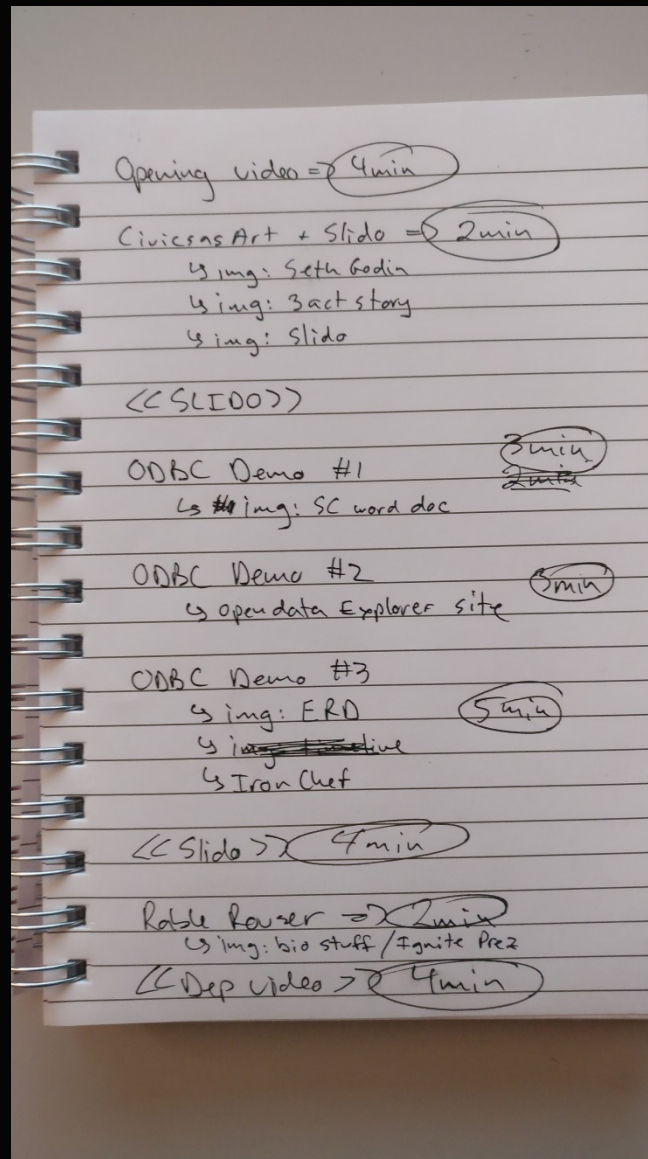 Opening video => 4min
CivicsasArt + Slido => 2min
↳ img: Seth Godin
↳ img: 3 act story
↳ img: Slido
<<SLIDO>>
3min
ODBC Demo #1 2min
↳ img: SC word doc
ODBC Demo #2 5min
↳ opendata Explorer site
ODBC Demo #3
↳ img: ERD 5min
↳ img
↳ Iron Chef
<<Slido>> 4min
Rable Rouser => 2min
↳ img: bio stuff / Ignite Prez
<<Dep video>> 4min